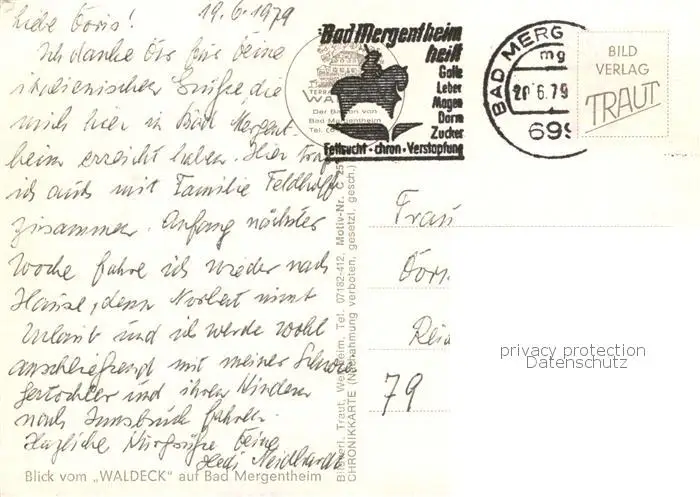 19.6.1979
Liebe Doris!
Ich danke Dir für Deine
italienischen Grüße die
mich hier in Bad Mergent-
heim erreicht haben. Hier traf
ich auch mit Familie Feldhoff
zusammen. Anfang nächster
Woche fahre ich wieder nach
Hause, denn Norbert nimmt
Urlaub und ich werde wohl
anschließend mit meiner Schwie
gertochter und ihren Kindern
nach Innsbruck fahren.
Herzliche Kurgrüße Deine
Hedi Neidhardt
Blick vom „WALDECK" auf Bad Mergentheim
TERRA
WA
Der Balkon von
Bad Mergentheim
Tel. (0
Bad Mergentheim
heilt
Galle
Leber
Magen
Darm
Zucker
Fettsucht · chron · Verstopfung
BAD MERG
mg
20.6.79
699
BILD
VERLAG
TRAUT
Bildverl. Traut, Wertheim, Tel. 07182-412, Motiv-Nr. C 25
CHRONIKKARTE (Nachahmung verboten, gesetzl. gesch.)
Frau
Doris
Reid
79
privacy protection
Datenschutz